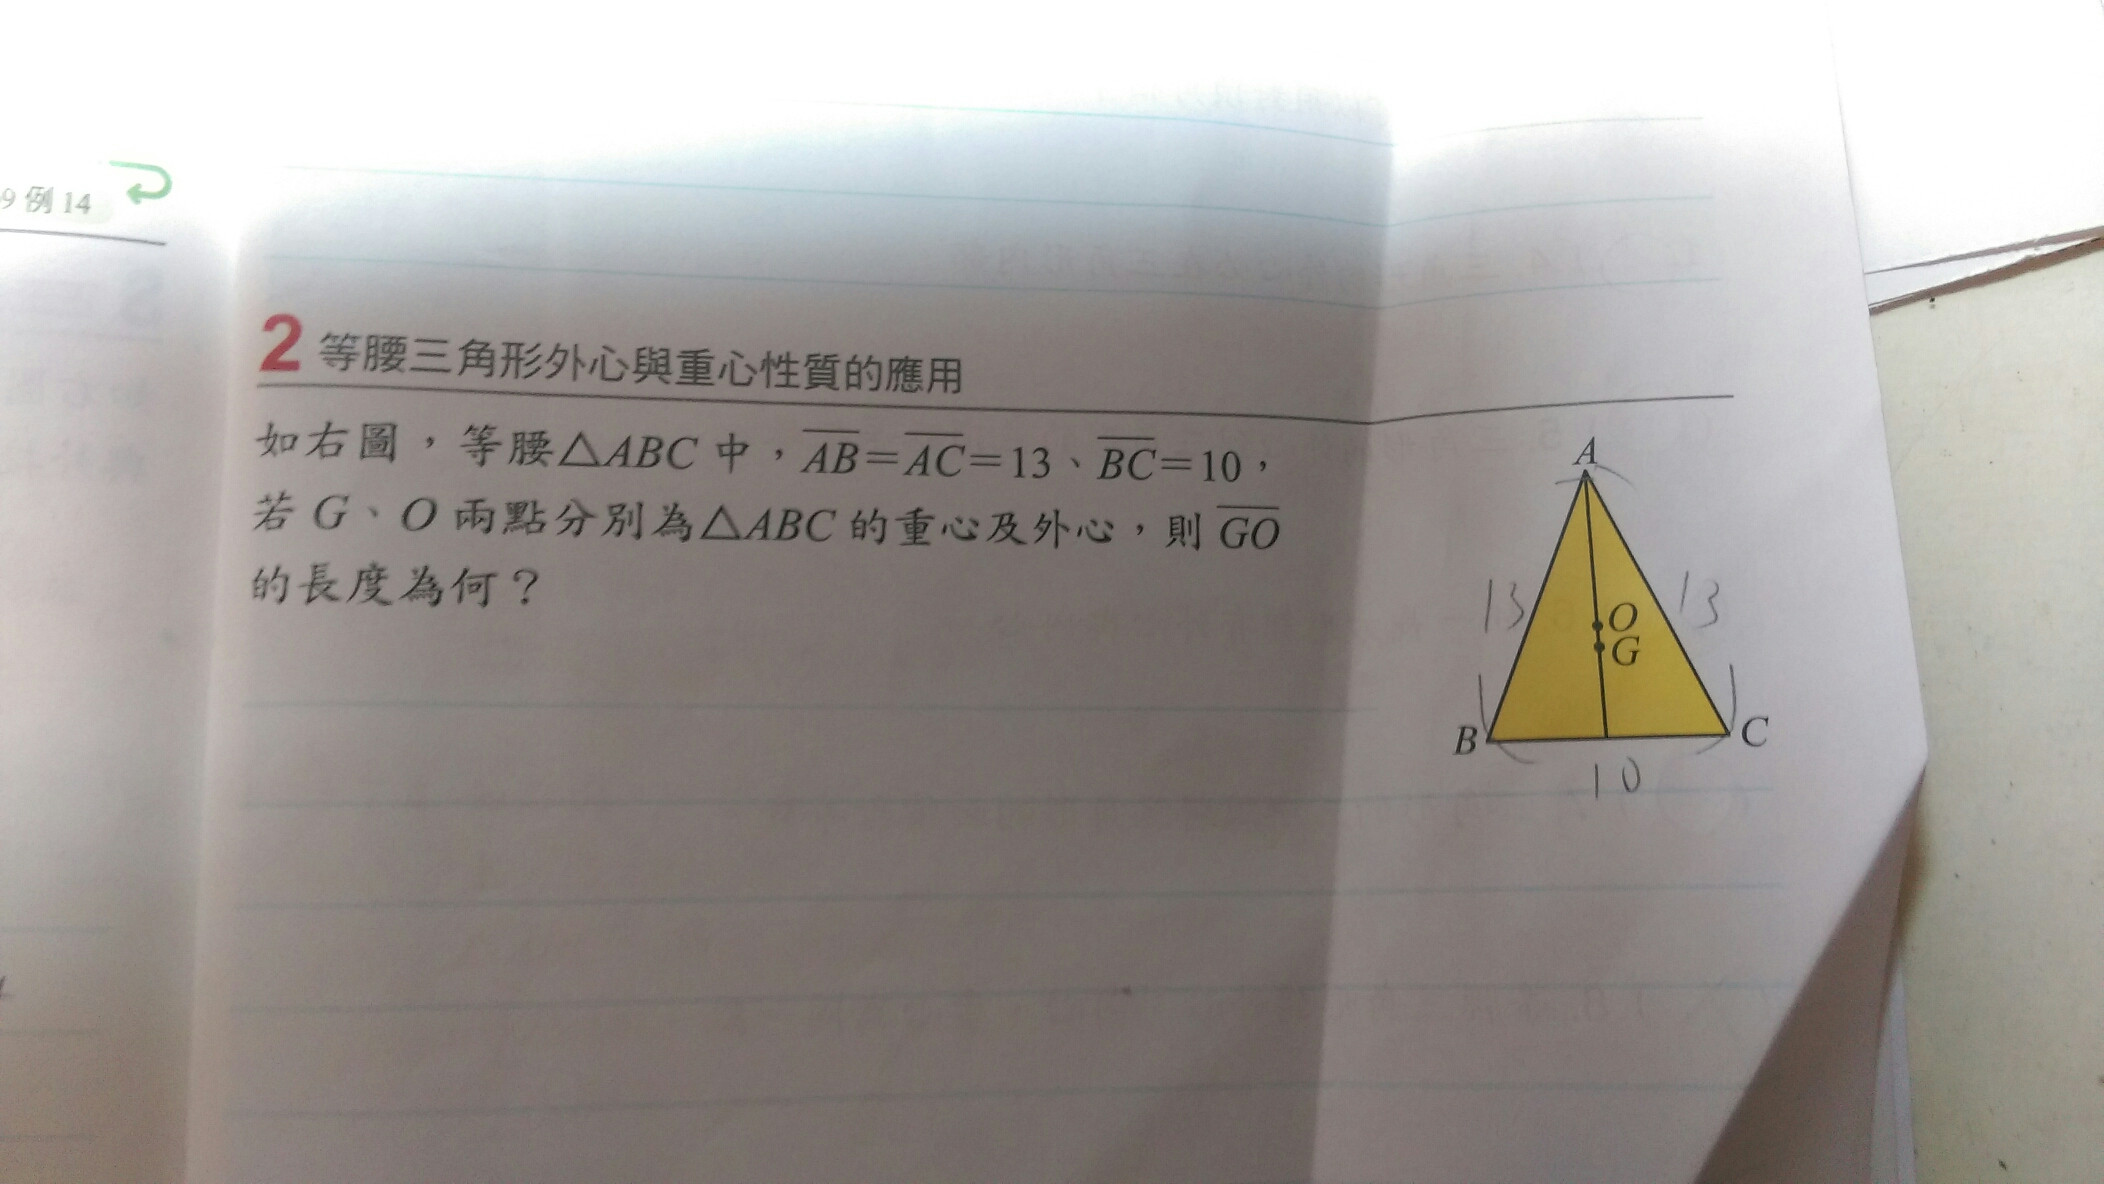 9 例14
2 等腰三角形外心與重心性質的應用
如右圖，等腰△ABC中，AB=AC=13、BC=10，
若G、O兩點分別為△ABC的重心及外心，則GO
的長度為何？
A
13
13
O
G
B
C
10